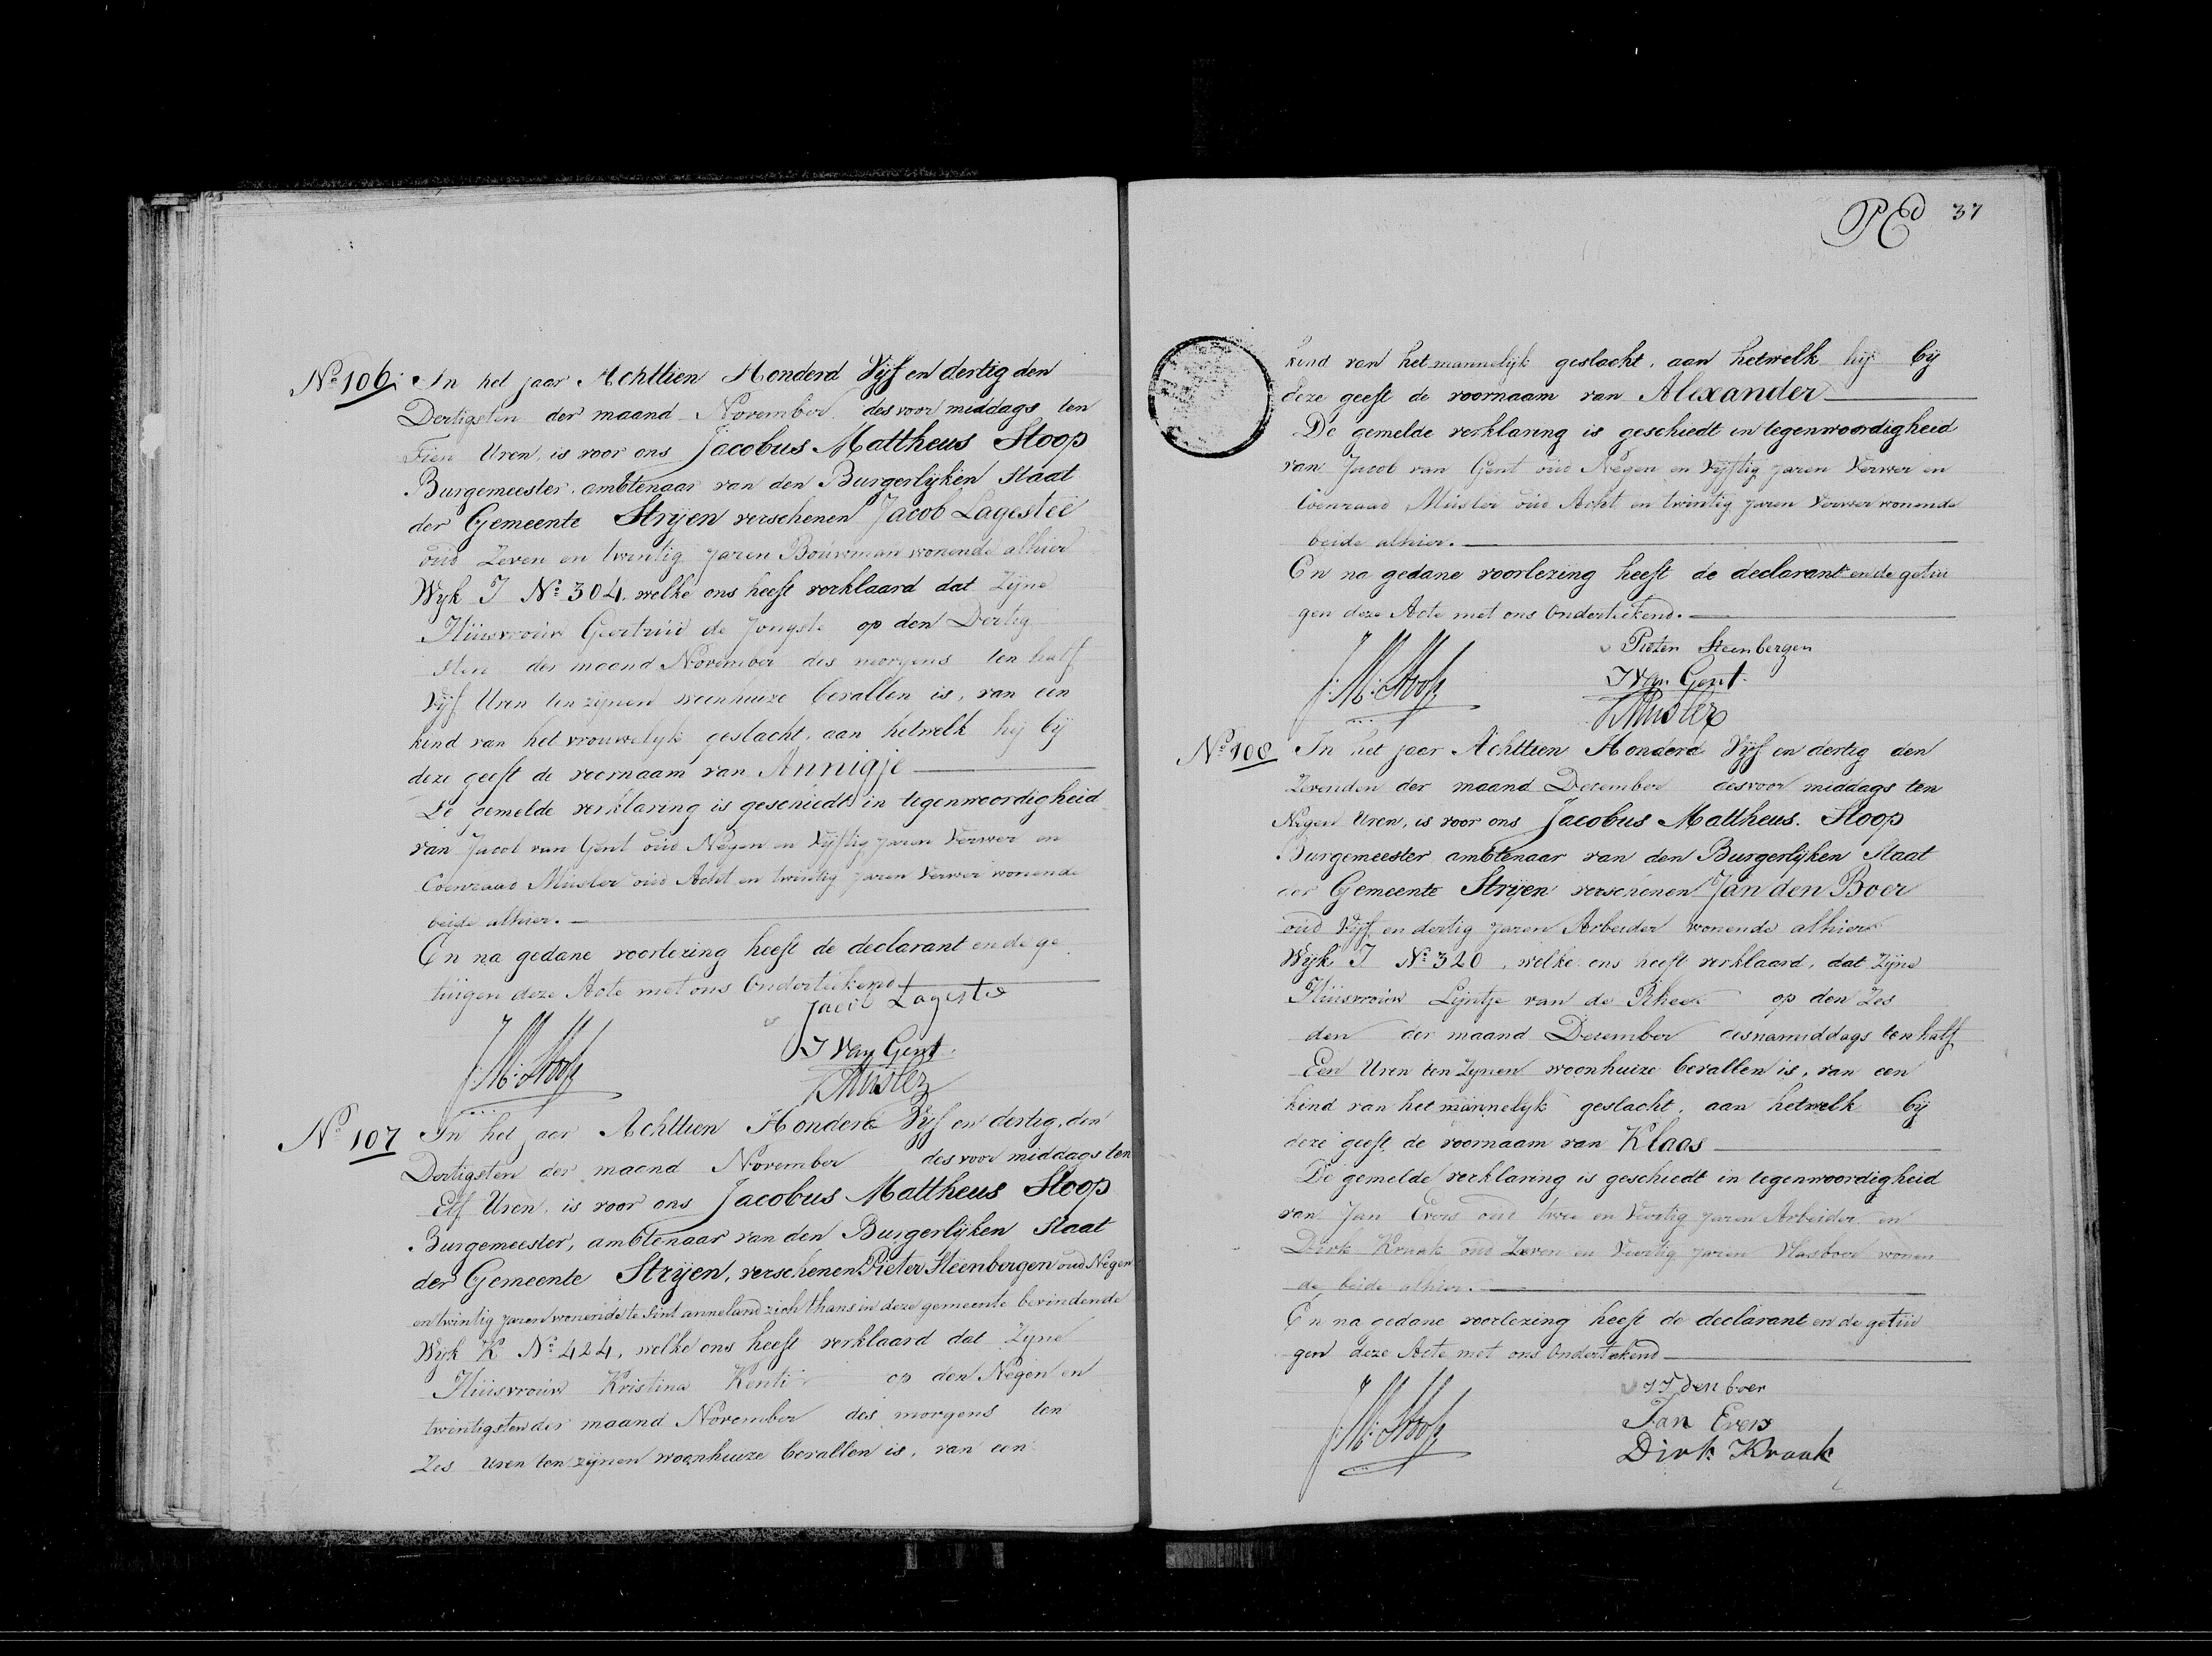 No 106. In het jaar Achttien Honderd Vijf en dertig den
Dertigsten der maand November des voor middags ten
Tien Uren, is voor ons Jacobus Mattheus Stoop
Burgemeester, ambtenaar van den Burgerlijken Staat
der Gemeente Strijen verschenen Jacob Lagestee
oud Zeven en twintig jaren Bouwman wonende alhier
Wijk I No 304, welke ons heeft verklaard dat Zijne
Huisvrouw Geertruid de Jongste op den Dertig
sten der maand November des morgens ten half
Vijf Uren ten zijnen woonhuize bevallen is, van een
kind van het vrouwelijk geslacht, aan hetwelk hij bij
deze geeft de voornaam van Annigje
De gemelde verklaring is geschiedt in tegenwoordigheid
van Jacob van Gent oud Negen en Vijftig jaren Verwer en
Coenraad Muster oud Acht en twintig jaren Verwer wonende
beide alhier.
En na gedane voorlezing heeft de declarant en de ge
tuigen deze Acte met ons Onderteekend
Jacob Lagestee
J. M. Stoop
J Van Gent.
C Muster
No 107 In het jaar Achttien Honderd Vijf en dertig, den
Dertigsten der maand November des voor middags ten
Elf Uren, is voor ons Jacobus Mattheus Stoop
Burgemeester, ambtenaar van den Burgerlijken Staat
der Gemeente Strijen, verschenen Pieter Steenbergen oud Negen
en twintig jaren wonende te Sint anneland zich thans in deze gemeente bevindende
Wijk K No 424, welke ons heeft verklaard dat Zijne
Huisvrouw Kristina op den Negen en
twintigsten der maand November des morgens ten
Zes Uren ten zijnen woonhuize bevallen is, van een
37
kind van het mannelijk geslacht, aan hetwelk hij bij
deze geeft de voornaam van Alexander
De gemelde verklaring is geschiedt in tegenwoordigheid
van Jacob van Gent oud Negen en Vijftig jaren Verwer en
Coenraad Muster oud Acht en twintig jaren Verwer wonende
beide alhier.
En na gedane voorlezing heeft de declarant en de getui
gen deze Acte met ons Onderteekend.
Pieter Steenbergen
J. M. Stoop
J Van Gent.
C Muster
No 108 In het jaar Achttien Honderd Vijf en dertig den
Zevenden der maand December des voor middags ten
Negen Uren, is voor ons Jacobus Mattheus. Stoop
Burgemeester ambtenaar van den Burgerlijken Staat
der Gemeente Strijen verschenen Jan den Boer
oud Vijf en dertig jaren Arbeider wonende alhier
Wijk I No 320, welke ons heeft verklaard, dat Zijne
Huisvrouw Lijntje van de Rhee op den Zes
den der maand December des namiddags ten half
Een Uren ten Zijnen woonhuize bevallen is, van een
kind van het mannelijk geslacht, aan hetwelk bij
deze geeft de voornaam van Klaas
De gemelde verklaring is geschiedt in tegenwoordigheid
van Jan Evers oud twee en Veertig jaren Arbeider en
Dirk Kraak oud Zeven en Veertig jaren Vlasboer wonen
de beide alhier.
En na gedane voorlezing heeft de declarant en de getui
gen deze Acte met ons Onderteekend
den boer
J. M. Stoop
Jan Evers
Dirk Kraak